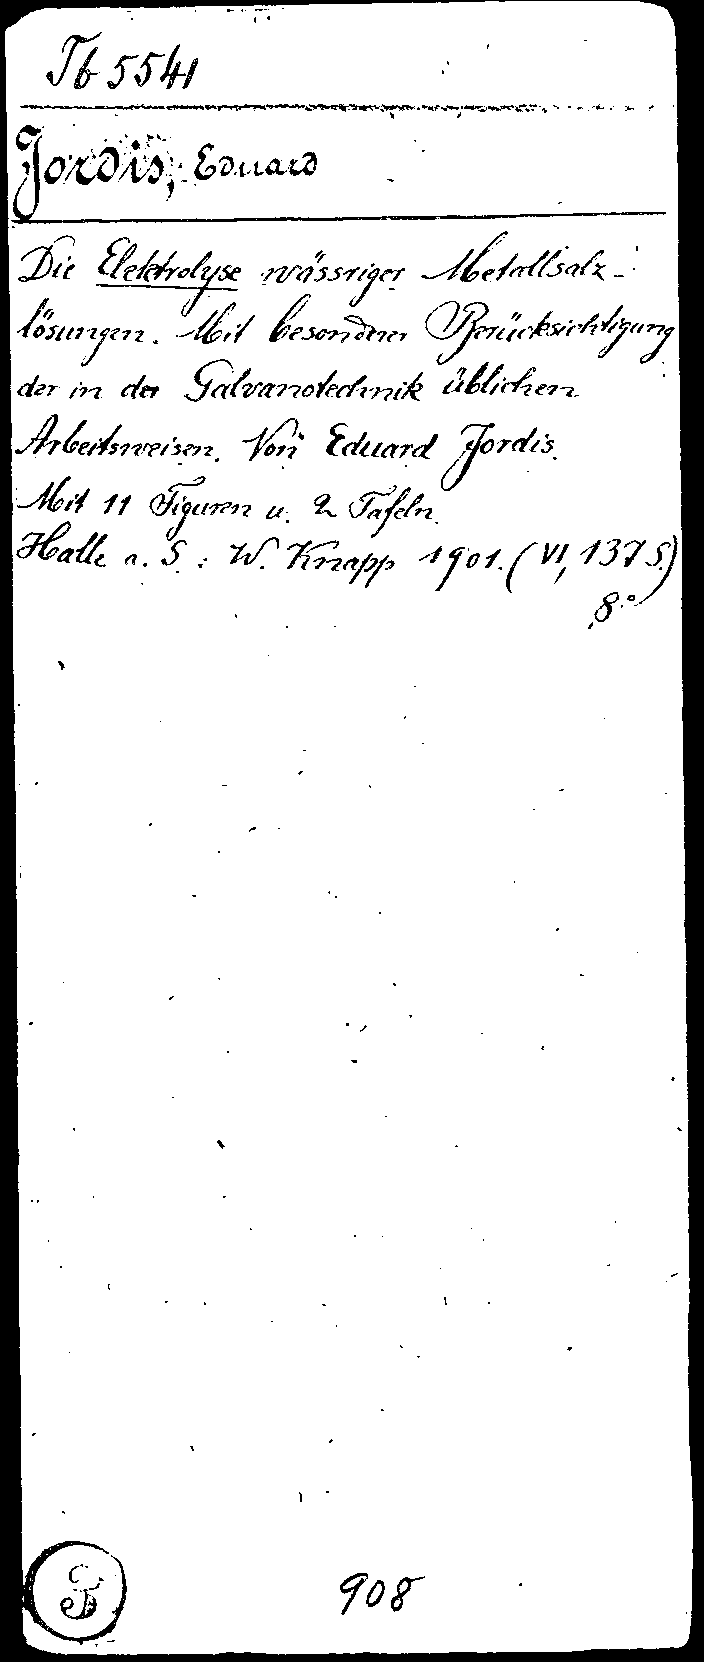 Tb 5541
Jordis, Eduard
Die Elektrolyse wässriger Metallsalz-
lösungen. Mit besonderer Berücksichtigung
der in der Galvanotechnik üblichen
Arbeitsweisen. Von Eduard Jordis.
Mit 11 Figuren u. 2 Tafeln.
Halle a. S.: W. Knapp 1901. (VI, 137 S.)
8°
908